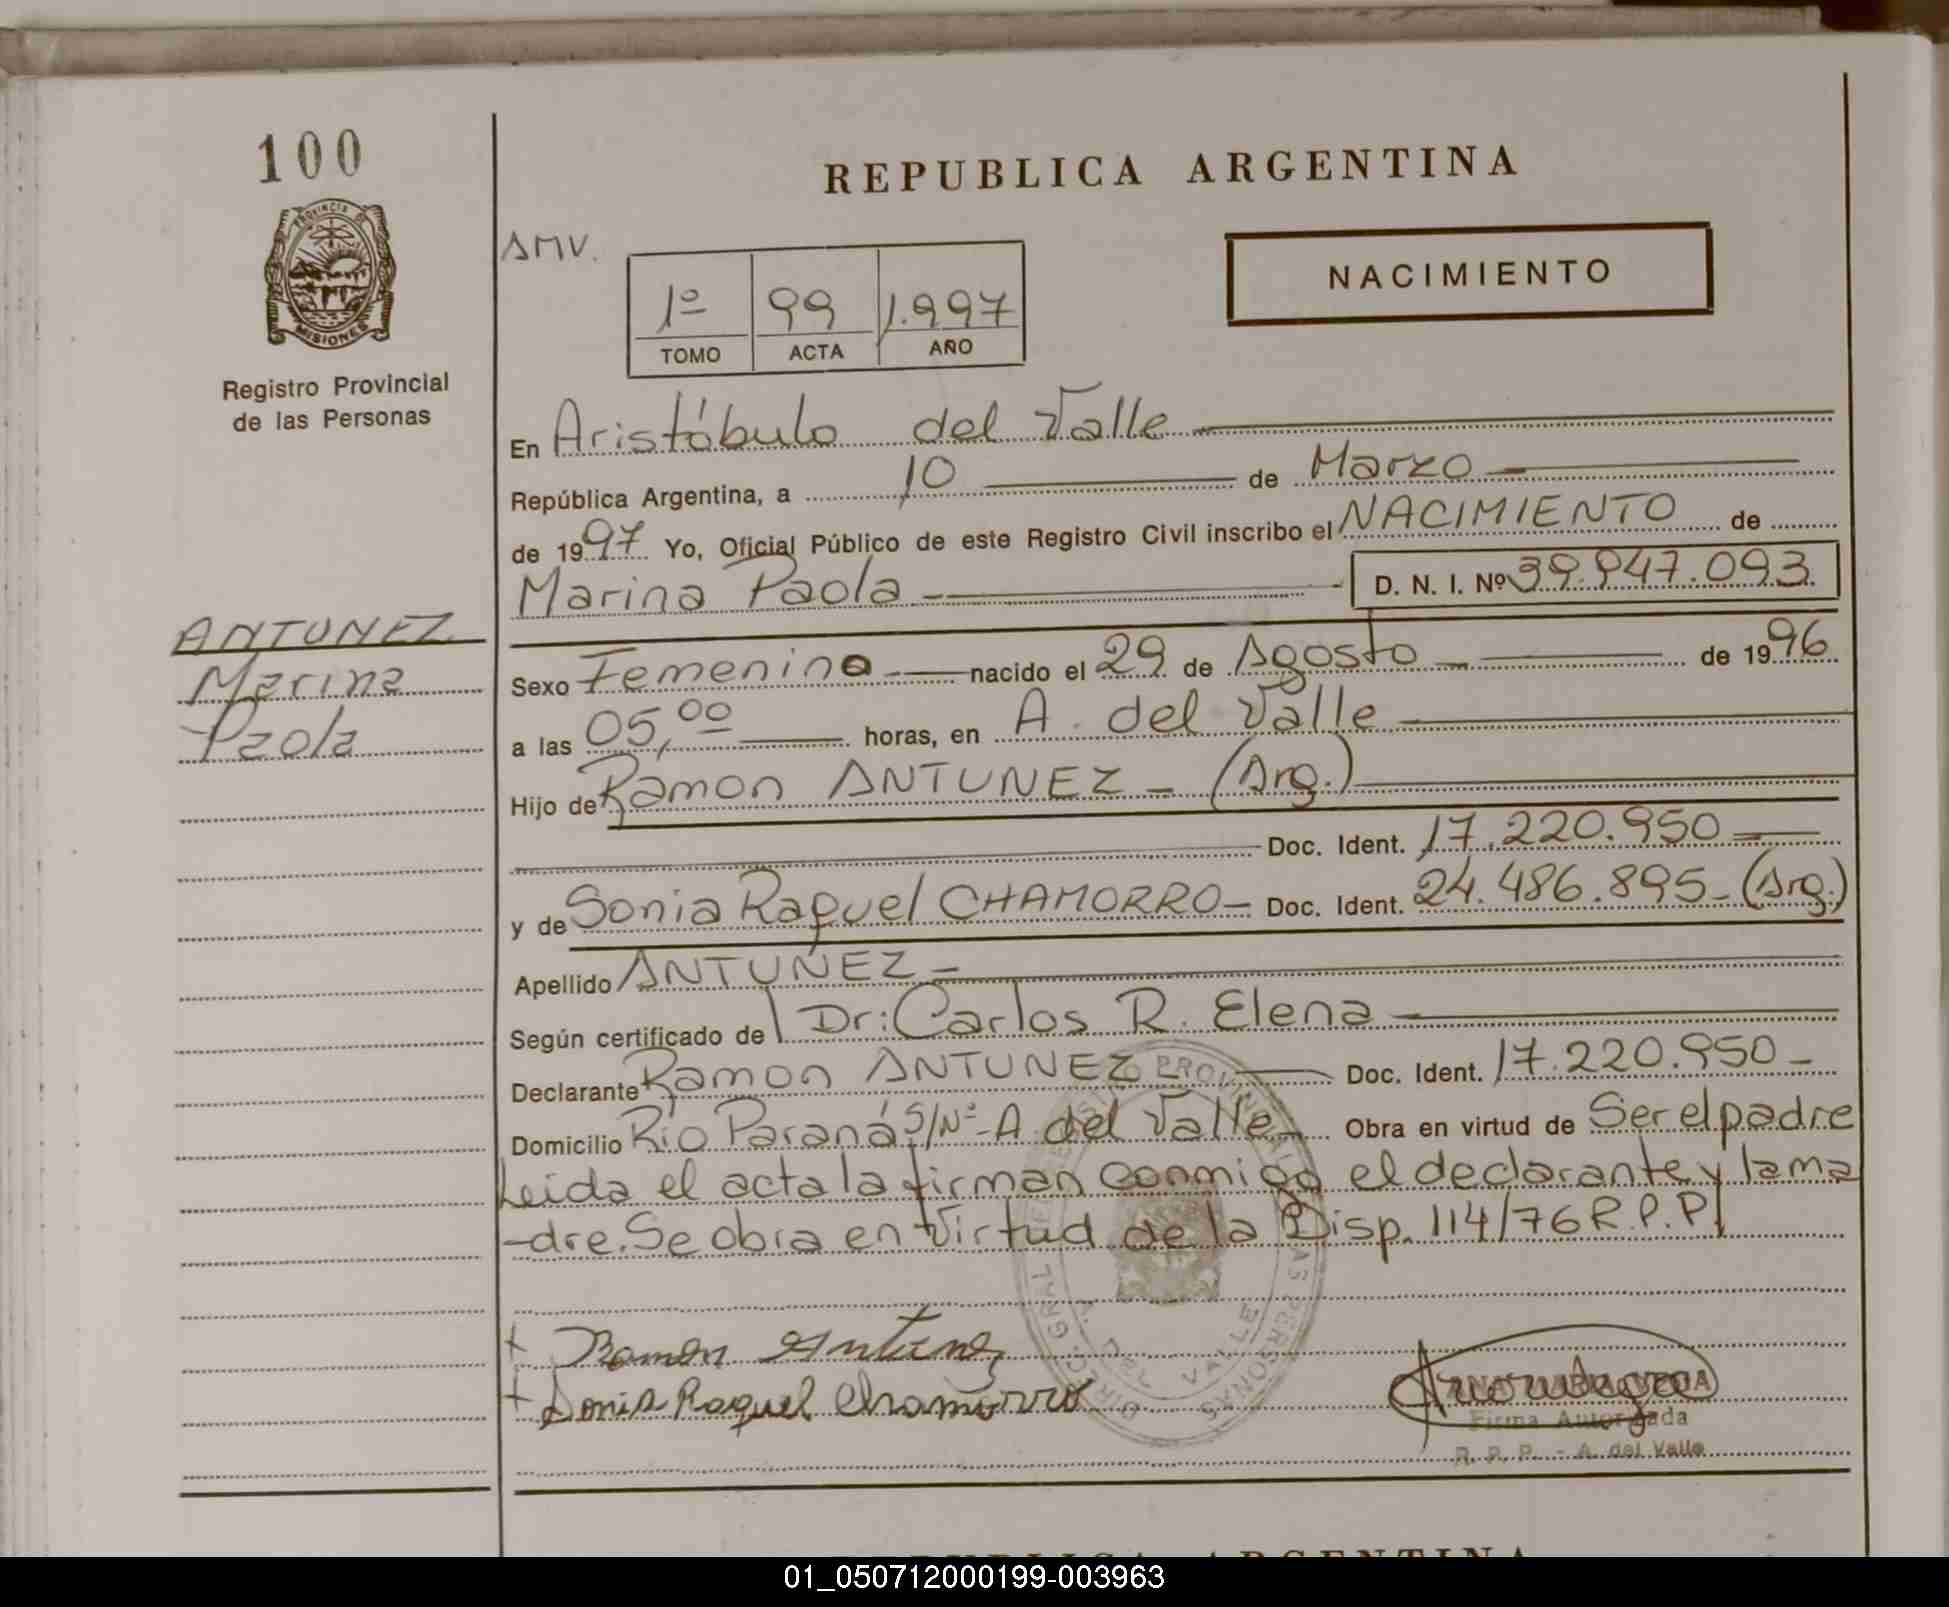 100
PROVINCIA DE
MISIONES
Registro Provincial
de las Personas
ANTUNEZ
Marina
Paola
REPUBLICA ARGENTINA
AMV.
NACIMIENTO
1º 99 1.997
TOMO ACTA AÑO
En Aristóbulo del Valle
República Argentina, a 10 de Marzo
de 1997 Yo, Oficial Público de este Registro Civil inscribo el NACIMIENTO de
Marina Paola D. N. I. Nº 39.947.093
Sexo Femenino nacido el 29 de Agosto de 1996
a las 05,00 horas, en A. del Valle
Hijo de Ramon ANTUNEZ - (Arg.)
Doc. Ident. 17.220.950
y de Sonia Raquel CHAMORRO - Doc. Ident. 24.486.895 - (Arg.)
Apellido ANTUNEZ -
Según certificado de Dr: Carlos R. Elena
Declarante Ramon ANTUNEZ Doc. Ident. 17.220.950 -
Domicilio Río Paraná S/Nº - A. del Valle Obra en virtud de Ser el padre
Leida el acta la firman conmigo el declarante y la ma
-dre. Se obra en Virtud de la Disp. 114/76 R.P.P.
+ Ramon Antunez
+ Sonia Raquel Chamorro
Firma Autorizada
R. P. P. - A. del Valle
01_050712000199-003963